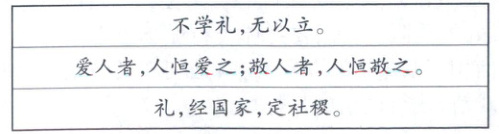 不学礼,无以立。
爱人者,人恒爱之;敬人者,人恒敬之。
礼,经国家,定社稷。